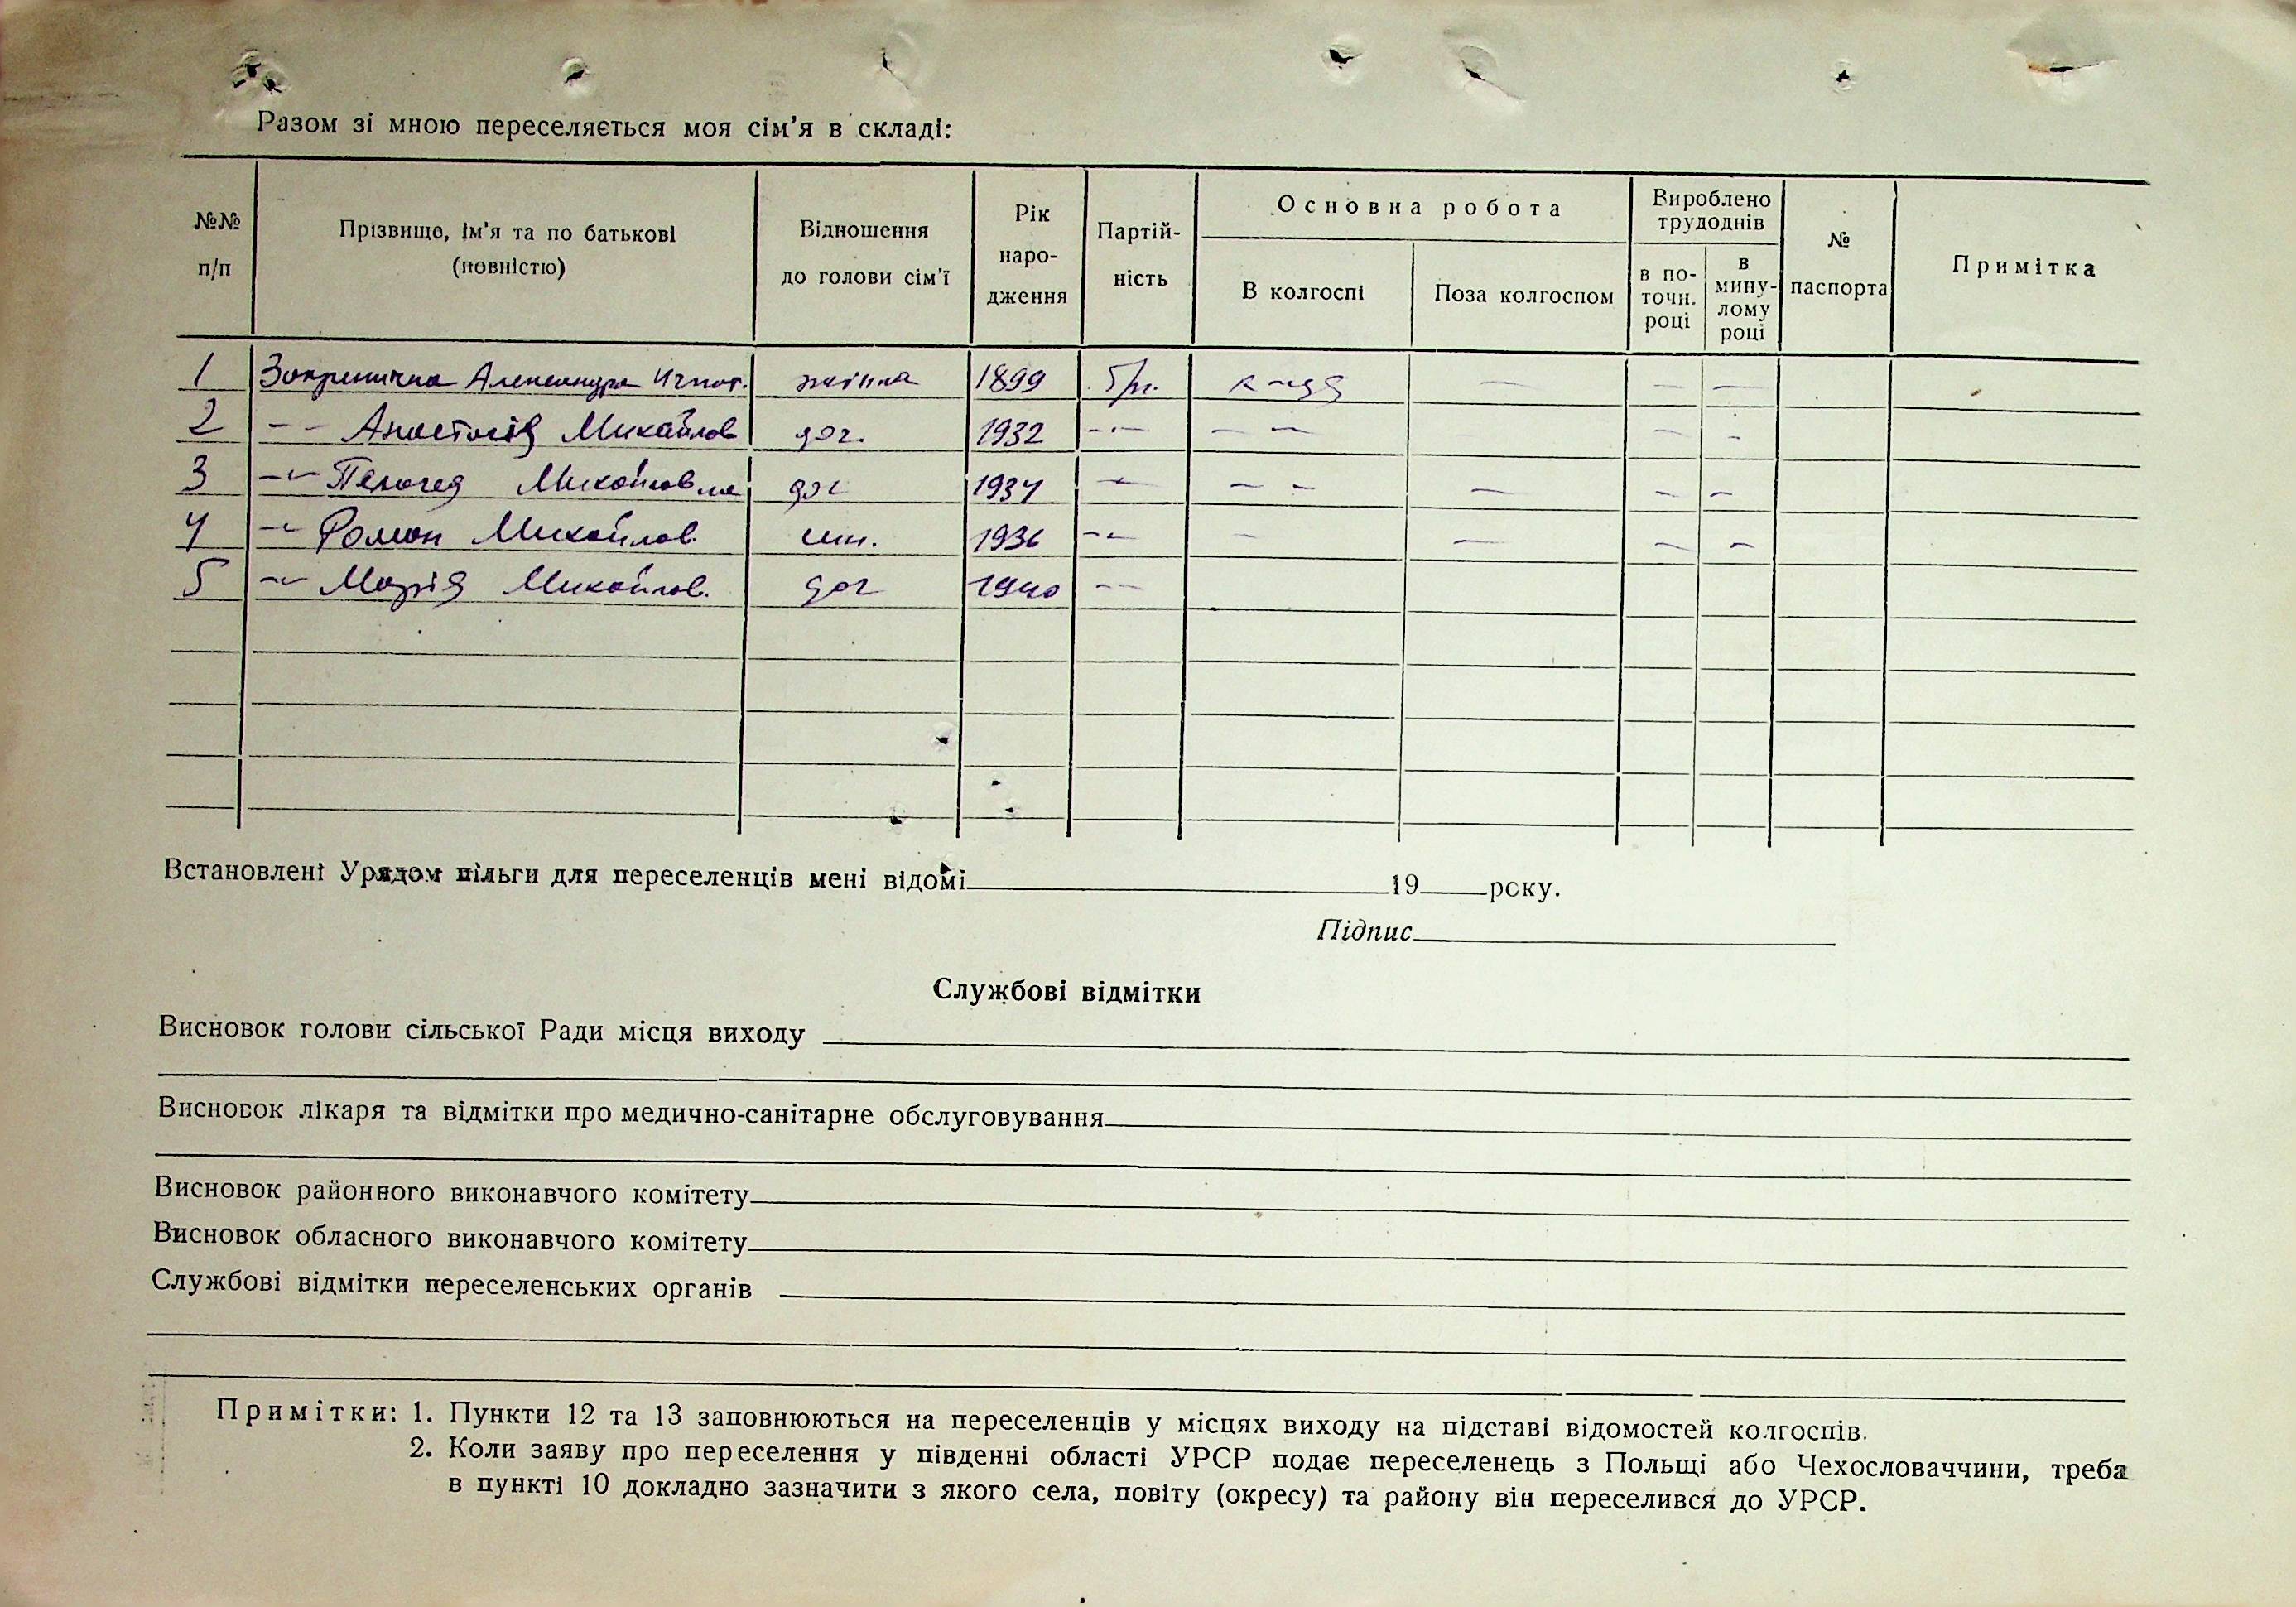 Разом зі мною переселяється моя сім'я в складі:
№№ п/п
Прізвище, ім'я та по батькові (повністю)
Відношення до голови сім'ї
Рік наро-дження
Партій-ність
Основна робота
В колгоспі
Поза колгоспом
Вироблено трудоднів
в по-точн. році
в мину-лому році
№ паспорта
Примітка
1 Александра Игнат. жінка 1899 б/п. — — —
2 -- Анастасія Михайлов доч. 1932 -- — — — —
3 -- Пелагея Михайловна доч 1934 -- — — — — —
4 -- Роман Михайлов. син. 1936 -- — — — —
5 -- Марія Михайлов. доч 1940 --
Встановлені Урядом пільги для переселенців мені відомі 19 року.
Підпис
Службові відмітки
Висновок голови сільської Ради місця виходу
Висновок лікаря та відмітки про медично-санітарне обслуговування
Висновок районного виконавчого комітету
Висновок обласного виконавчого комітету
Службові відмітки переселенських органів
Примітки: 1. Пункти 12 та 13 заповнюються на переселенців у місцях виходу на підставі відомостей колгоспів.
2. Коли заяву про переселення у південні області УРСР подає переселенець з Польщі або Чехословаччини, треба
в пункті 10 докладно зазначити з якого села, повіту (окресу) та району він переселився до УРСР.